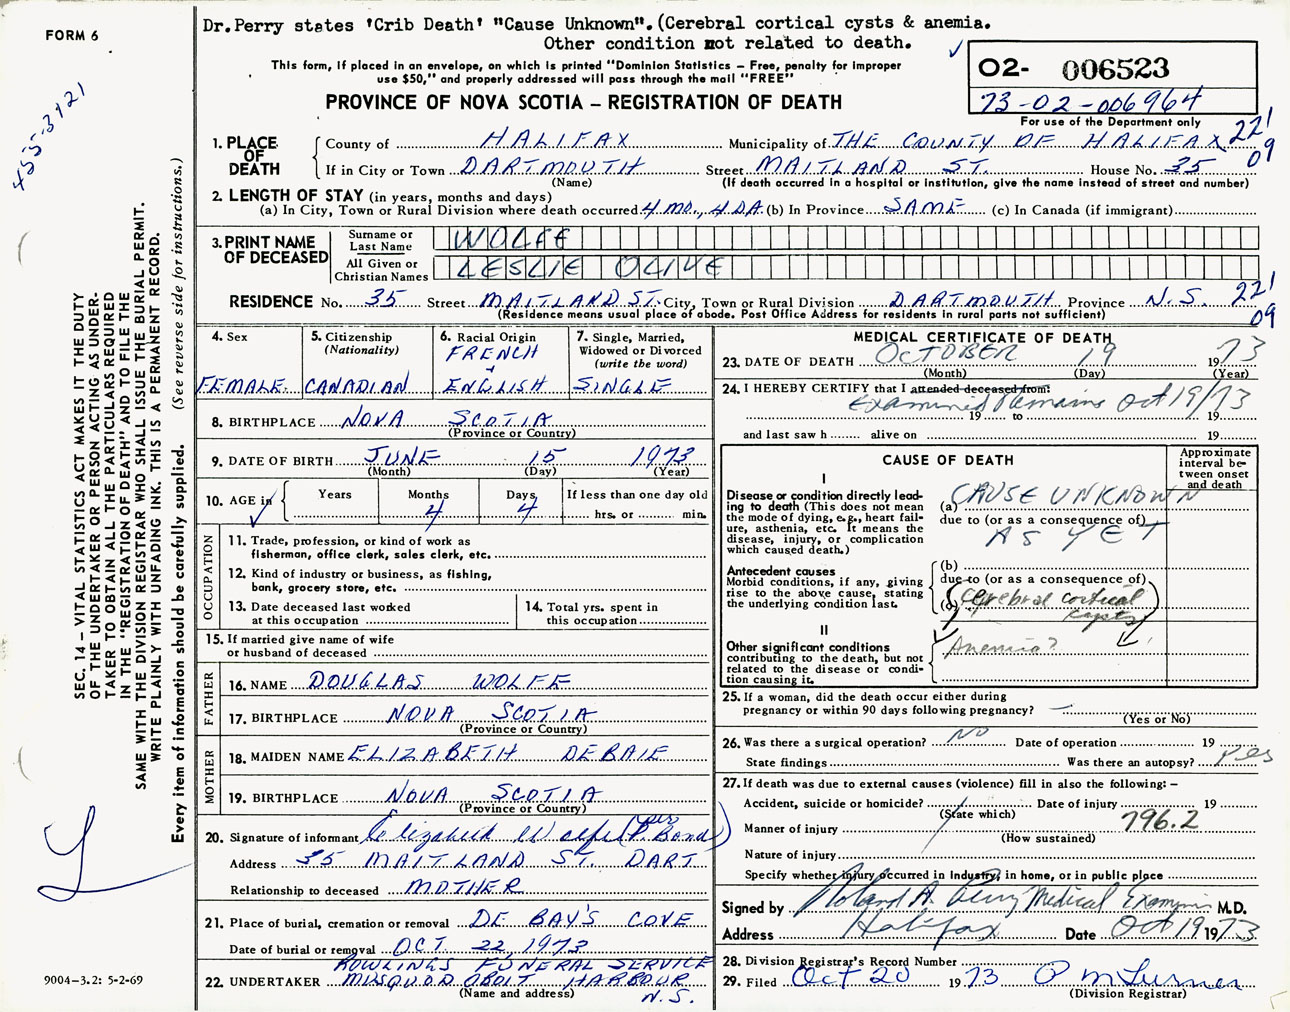 FORM 6
Dr. Perry states 'Crib Death' "Cause Unknown". (Cerebral cortical cysts & anemia.
Other condition not related to death.
This form, if placed in an envelope, on which is printed "Dominion Statistics – Free, penalty for improper
use $50," and properly addressed will pass through the mail "FREE"
PROVINCE OF NOVA SCOTIA – REGISTRATION OF DEATH
02- 006523
73-02-006964
For use of the Department only
455-3421
SEC. 14 – VITAL STATISTICS ACT MAKES IT THE DUTY
OF THE UNDERTAKER OR PERSON ACTING AS UNDER-
TAKER TO OBTAIN ALL THE PARTICULARS REQUIRED
IN THE "REGISTRATION OF DEATH" AND TO FILE THE
SAME WITH THE DIVISION REGISTRAR WHO SHALL ISSUE THE BURIAL PERMIT.
WRITE PLAINLY WITH UNFADING INK. THIS IS A PERMANENT RECORD.
Every item of information should be carefully supplied. (See reverse side for instructions.)
1. PLACE OF DEATH
County of HALIFAX Municipality of THE COUNTY OF HALIFAX 221
09
If in City or Town DARTMOUTH Street MAITLAND ST. House No. 35
(Name) (If death occurred in a hospital or institution, give the name instead of street and number)
2. LENGTH OF STAY (in years, months and days)
(a) In City, Town or Rural Division where death occurred 4 MO., 4 DA (b) In Province SAME (c) In Canada (if immigrant)
3. PRINT NAME OF DECEASED
Surname or Last Name WOLFE
All Given or Christian Names LESLIE OLIVE
RESIDENCE No. 35 Street MAITLAND ST. City, Town or Rural Division DARTMOUTH Province N.S. 221
09
(Residence means usual place of abode. Post Office Address for residents in rural parts not sufficient)
4. Sex
FEMALE
5. Citizenship
(Nationality)
CANADIAN
6. Racial Origin
FRENCH
+
ENGLISH
7. Single, Married,
Widowed or Divorced
(write the word)
SINGLE
8. BIRTHPLACE NOVA SCOTIA
(Province or Country)
9. DATE OF BIRTH JUNE 15 1973
(Month) (Day) (Year)
10. AGE in Years Months 4 Days 4 If less than one day old
hrs. or min.
OCCUPATION
11. Trade, profession, or kind of work as
fisherman, office clerk, sales clerk, etc.
12. Kind of industry or business, as fishing,
bank, grocery store, etc.
13. Date deceased last worked
at this occupation
14. Total yrs. spent in
this occupation
15. If married give name of wife
or husband of deceased
FATHER
16. NAME DOUGLAS WOLFE
17. BIRTHPLACE NOVA SCOTIA
(Province or Country)
MOTHER
18. MAIDEN NAME ELIZABETH DEBAIE
19. BIRTHPLACE NOVA SCOTIA
(Province or Country)
20. Signature of informant Elizabeth Wolfe (per P. Bond)
Address 35 MAITLAND ST. DART
Relationship to deceased MOTHER
21. Place of burial, cremation or removal DE BAY'S COVE
Date of burial or removal OCT 22, 1973
ROWLINGS FUNERAL SERVICE
22. UNDERTAKER MUSQUODOBOIT HARBOUR
(Name and address) N.S.
MEDICAL CERTIFICATE OF DEATH
23. DATE OF DEATH OCTOBER 19 1973
(Month) (Day) (Year)
24. I HEREBY CERTIFY that I attended deceased from:
Examined Remains Oct 19/73
19 to 19
and last saw h alive on 19
CAUSE OF DEATH
Approximate
interval be-
tween onset
and death
I
Disease or condition directly lead-
ing to death (This does not mean
the mode of dying, e.g., heart fail-
ure, asthenia, etc. It means the
disease, injury, or complication
which caused death.)
(a) CAUSE UNKNOWN
due to (or as a consequence of)
AS YET
Antecedent causes
Morbid conditions, if any, giving
rise to the above cause, stating
the underlying condition last.
(b)
due to (or as a consequence of)
(c) (Cerebral cortical
cysts)
II
Other significant conditions
contributing to the death, but not
related to the disease or condi-
tion causing it.
Anemia?
25. If a woman, did the death occur either during
pregnancy or within 90 days following pregnancy? –
(Yes or No)
26. Was there a surgical operation? NO Date of operation 19
State findings Was there an autopsy? yes
27. If death was due to external causes (violence) fill in also the following: –
Accident, suicide or homicide? Date of injury 19
(State which)
Manner of injury 796.2
(How sustained)
Nature of injury
Specify whether injury occurred in Industry, in home, or in public place
Signed by Roland A. Perry Medical Examiner M.D.
Address Halifax Date Oct 19 1973
28. Division Registrar's Record Number
29. Filed Oct 20 1973 P M Turner
(Division Registrar)
9004–3.2: 5-2-69